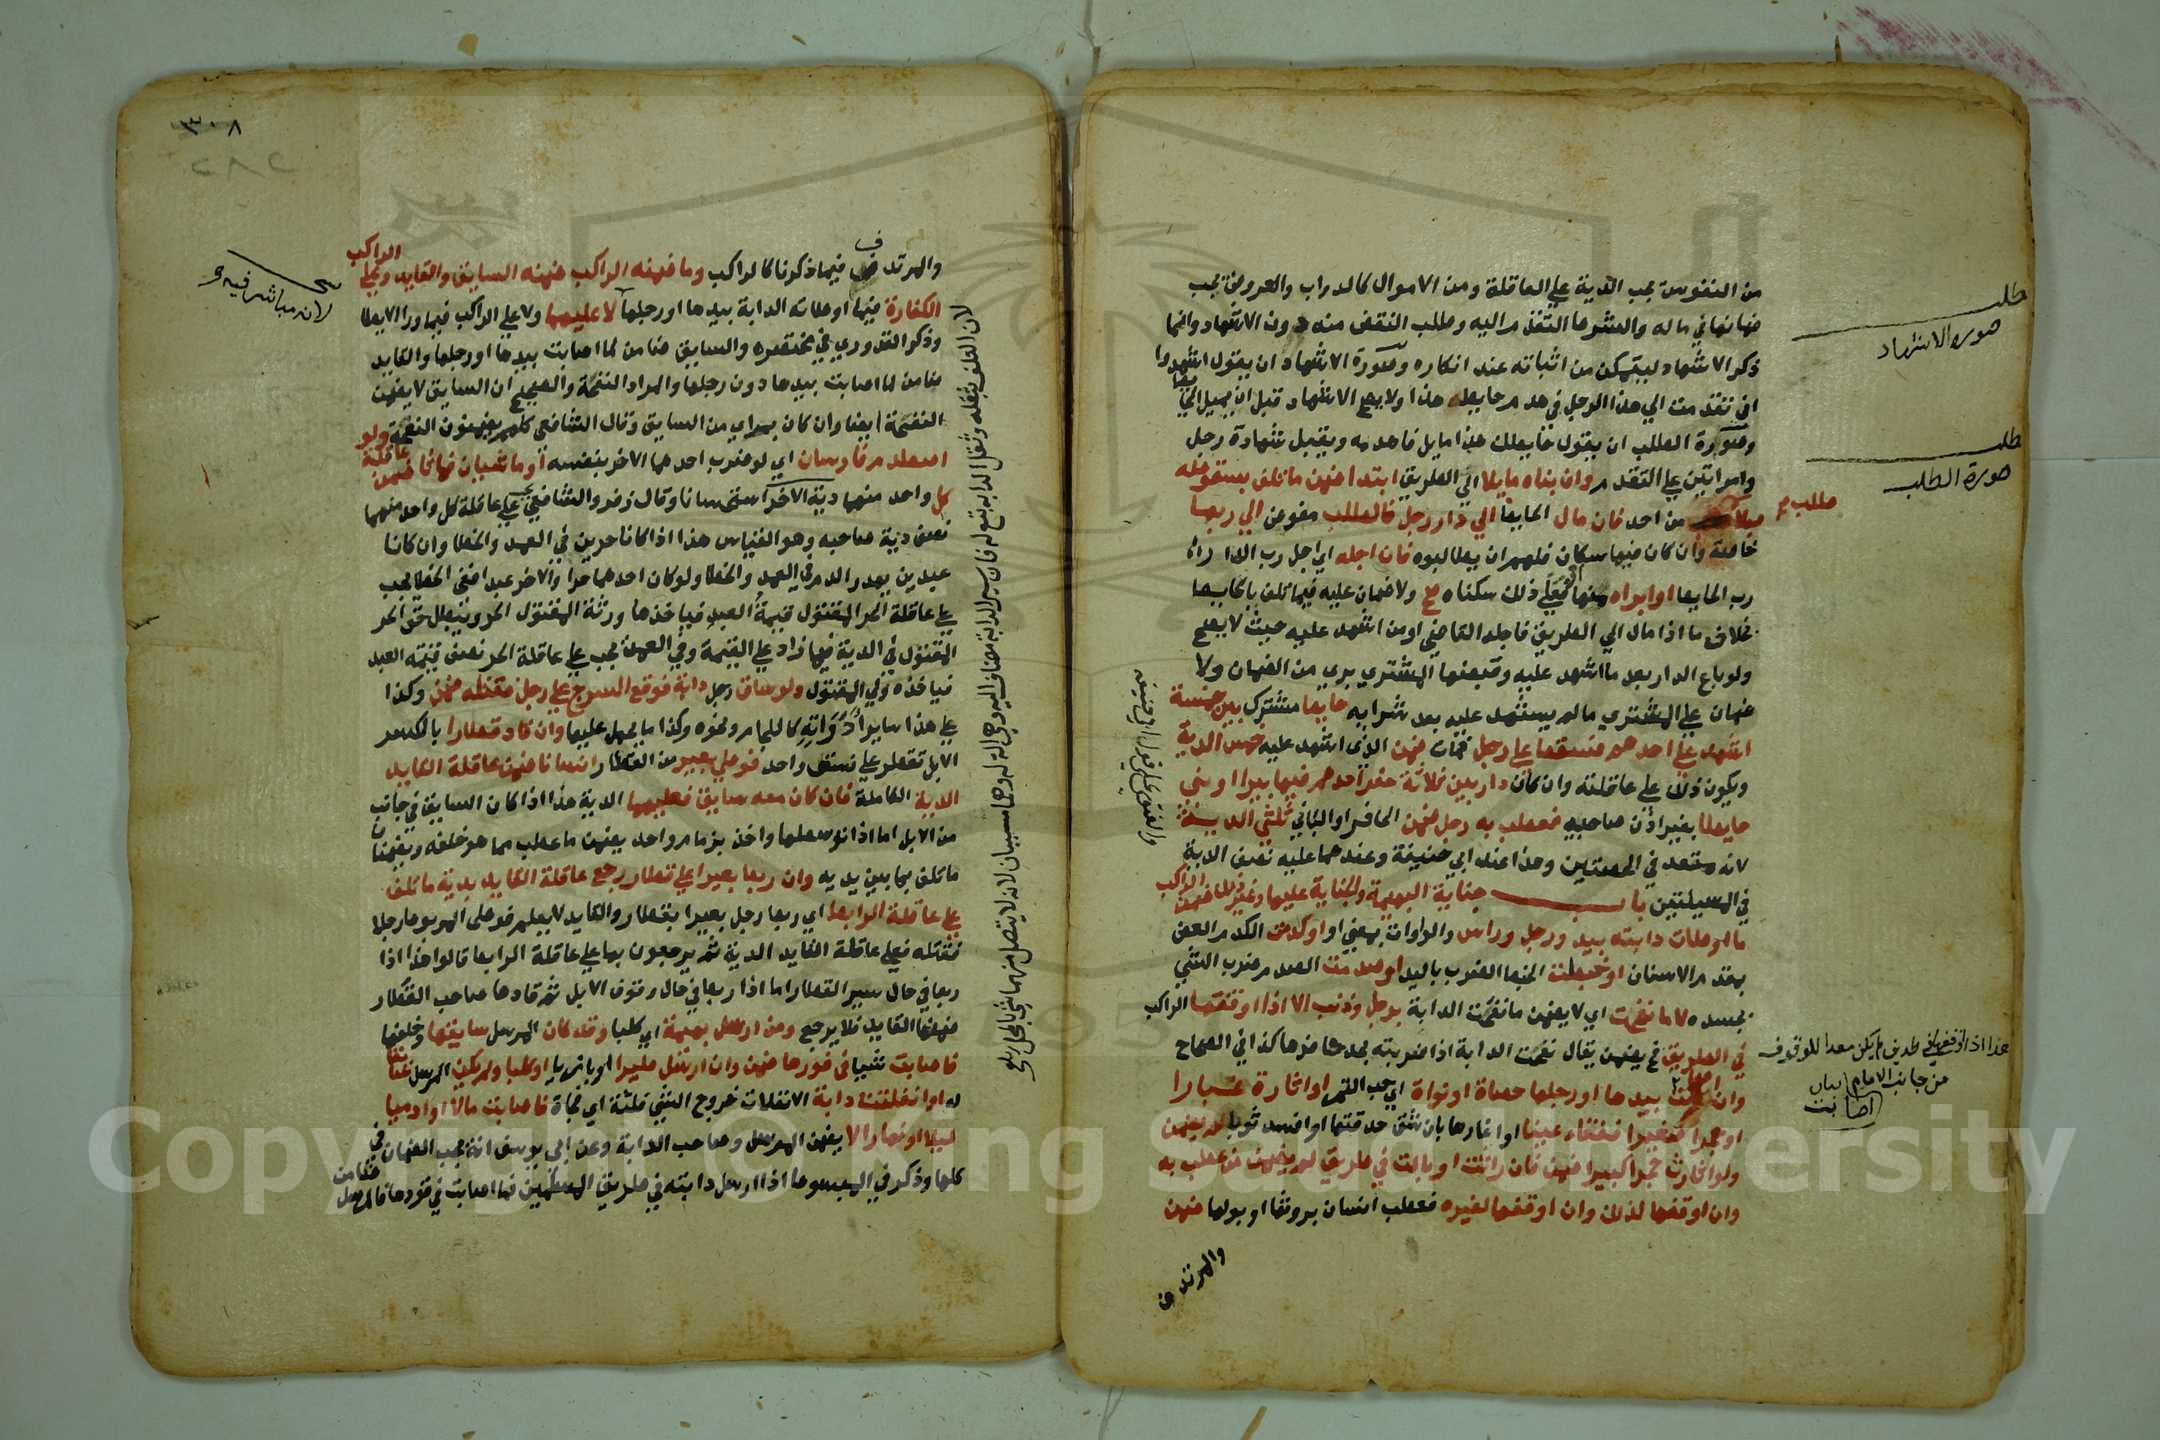 من النفوس تجب الدية على العاقلة ومن الاموال كالدواب والعروض تجب
ضمانها في ماله والشرط التقدم اليه وطلب النقض منه دون الاشهاد وانما
ذكر الاشهاد ليتمكن من اثباته عند انكاره وصورة الاشهاد ان يقول اشهدوا
اني تقدمت الي هذا الرجل في هدم حايطه هذا ولا يصح الاشهاد قبل ان يميل الحايط
وصورة الطلب ان يقول حايطك هذا مايل فاهدمه ويقبل شهادة رجل
وامراتين علي التقدم وان بناه مايلا الي الطريق ابتدا ضمن ما تلف بسقوطه
بلا طلب من احد فان مال الحايط الي دار رجل فالطلب مفوض الي ربها
خاصة وان كان فيها سكان فلهم ان يطالبوه فان اجله اي اجل رب الدار
رب الحايط او ابراه منها فعلى ذلك سكناه صح ولا ضمان عليه فيما تلف بالحايط
بخلاف ما اذا مال الي الطريق فاجله القاضي او من اشهد عليه حيث لا يصح
ولو باع الدار بعد ما اشهد عليه وقبضها المشتري بري من الضمان ولا
ضمان علي المشتري ما لم يستشهد عليه بعد شرايه حايط مشترك بين خمسة
اشهد علي احدهم فسقط علي رجل فمات ضمن الذي اشهد عليه خمس الدية
ويكون ذلك علي عاقلته وان كان دار بين ثلاثة حفر احدهم فيها بيرا او بني
حايطا بغير اذن صاحبيه فعطب به رجل ضمن الحافر او الباني ثلثي الدية
لانه متعد في الحصتين وهذا عند ابي حنيفة وعندهما عليه نصف الدية
في المسيلتين باب جناية البهيمة والجناية عليها وغير ذلك ضمن الراكب
ما اوطات دابته بيد ورجل وراس والواوات بمعني او او كدمت الكدم العض
بمقدم الاسنان او خبطت الخبط الضرب باليد او صدمت الصدم ضرب الشئ
بجسده لا ما نفحت اي لا يضمن ما نفحت الدابة برجل وذنب الا اذا اوقفها الراكب
في الطريق فح يضمن يقال نفحت الدابة اذا ضربته بحد حافرها كذا في الصحاح
وان اصابت بيدها او رجلها حصاة او نواة اي حب التمر او اثارة غبارا
او حجرا صغيرا ففقاء عينا او اثارها بان شق حدقتها او افسد ثوبا لم يضمن
ولو اثارت حجرا كبيرا ضمن فان راثت او بالت في طريق لم يضمن من عطب به
وان اوقفها لذلك وان اوقفها لغيره فعطب انسان بروثها او بولها ضمن
والمرتدف
مطلب
صورة الاشهاد
مطلب
صورة الطلب
مطلب
هذا اذا اوقفها في الطريق لم يكن معدا للوقوف
من جانب الامام
اصابت
والفتوى على قول ابي حنيفة
٣٠٨
والمرتدف فيما ذكرنا كالراكب وما ضمنه الراكب ضمنه السايق والقايد وعلي الراكب
الكفارة فيما اوطاته الدابة بيدها او رجلها لا عليهما ولا علي الراكب فيما ورا الايطا
وذكر القدوري في مختصره والسايق ضامن لما اصابت بيدها او رجلها والقايد
ضامن لما اصابت بيدها دون رجلها والمراد النفحة والصحيح ان السايق لا يضمن
النفحة ايضا وان كان بمراي من السايق وقال الشافعي كلهم يضمنون النفحة ولو
اصطدم فارسان اي لو ضرب احدهما الاخر بنفسه او ماشيان فماتا ضمن عاقلة
كل واحد منهما دية الاخر استحسانا وقال زفر والشافعي يجب علي عاقلة كل واحد منهما
نصف دية صاحبه وهو القياس هذا اذا كانا حرين في العمد والخطا وان كانا
عبدين يهدر الدم في العمد والخطا ولو كان احدهما حرا والاخر عبدا ففي الخطا يجب
علي عاقلة الحر المقتول قيمة العبد فياخذها ورثة المقتول الحر ويبطل حق الحر
المقتول في الدية فيما زاد علي القيمة وفي العمد يجب علي عاقلة الحر نصف قيمة العبد
فياخذه ولي المقتول ولو ساق رجل دابة فوقع السرج علي رجل فقتله ضمن وكذا
علي هذا ساير ادواته كاللجام ونحوه وكذا ما يحمل عليها وان قاد قطارا بالكسر
الابل تقطر علي نسق واحد فوطي بعير من القطار انسانا ضمن عاقلة القايد
الدية الكاملة فان كان معه سايق فعليهما الدية هذا اذا كان السايق في جانب
من الابل اما اذا توسطها واخذ بزمام واحد يضمن ما عطب مما هو خلفه ويضمنان
ما تلف بما بين يديه وان ربط بعيرا علي قطار رجع عاقلة القايد بدية ما تلف
علي عاقلة الرابط اي ربط رجل بعيرا بقطار والقايد لا يعلم فوطي المربوط رجلا
فقتله فعلي عاقلة القايد الدية ثم يرجعون بها علي عاقلة الرابط قالوا هذا اذا
ربط في حال سير القطار اما اذا ربط في حال وقوف الابل ثم قادها صاحب القطار
ضمنها القايد فلا يرجع ومن ارسل بهيمة اي كلبا وقد كان المرسل سايقها وخلفها
فاصابت شيا في فورها ضمن وان ارسل طيرا او بازيا او كلبا ولم يكن المرسل سايقا
له او انفلتت دابة الانفلات خروج الشئ فلتة اي فجاة فاصابت مالا او ادميا
ليلا او نهارا لا يضمن المرسل وصاحب الدابة وعن ابي يوسف انه يجب الضمان في
كلها وذكر في المبسوط اذا ارسل دابته في طريق المسلمين فما اصابت في فورها فالمرسل ضامن
لانه مباشر فيه